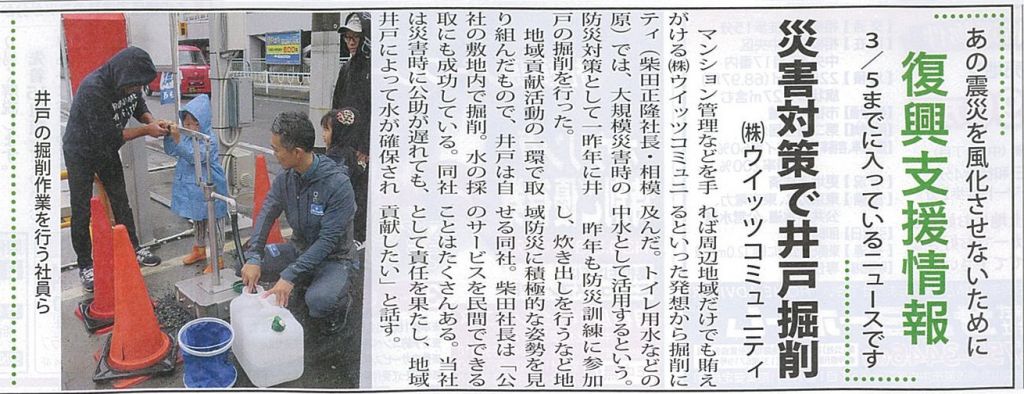 あの震災を風化させないために
復興支援情報
3／5までに入っているニュースです
災害対策で井戸掘削
㈱ウイッツコミュニティ
マンション管理などを手
がける㈱ウイッツコミュニ
ティ（柴田正隆社長・相模
原）では、大規模災害時の
防災対策として一昨年に井
戸の掘削を行った。
地域貢献活動の一環で取
り組んだもので、井戸は自
社の敷地内で掘削。水の採
取にも成功している。同社
は災害時に公助が遅れても、
井戸によって水が確保され
れば周辺地域だけでも賄え
るといった発想から掘削に
及んだ。トイレ用水などの
中水として活用するという。
昨年も防災訓練に参加
し、炊き出しを行うなど地
域防災に積極的な姿勢を見
せる同社。柴田社長は「公
のサービスを民間でできる
ことはたくさんある。当社
として責任を果たし、地域
貢献したい」と話す。
井戸の掘削作業を行う社員ら